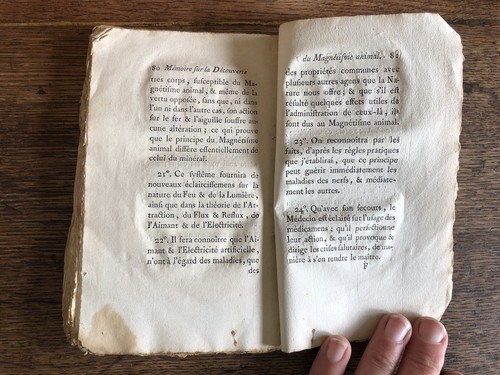 80 Mémoire sur la Découverte
tres corps, susceptible du Ma-
gnétisme animal, & même de la
vertu opposée, sans que, ni dans
l'un ni dans l'autre cas, son action
sur le fer & l'aiguille souffre au-
cune altération; ce qui prouve
que le principe du Magnétisme
animal differe essentiellement de
celui du minéral.
21°. Ce systême fournira de
nouveaux éclaircissemens sur la
nature du Feu & de la Lumière,
ainsi que dans la théorie de l'At-
traction, du Flux & Reflux, de
l'Aimant & de l'Electricité.
22°. Il fera connoître que l'Ai-
mant & l'Electricité artificielle,
n'ont à l'égard des maladies, que
des
du Magnétisme animal. 81
des propriétés communes avec
plusieurs autres agens que la Na-
ture nous offre; & que s'il est
résulté quelques effets utiles de
l'administration de ceux-là, ils
sont dus au Magnétisme animal.
23°. On reconnoîtra par les
faits, d'après les règles pratiques
que j'établirai, que ce principe
peut guérir immédiatement les
maladies des nerfs, & médiate-
ment les autres.
24°. Qu'avec son secours, le
Médecin est éclairé sur l'usage des
médicamens; qu'il perfectionne
leur action, & qu'il provoque &
dirige les crises salutaires, de ma-
nière à s'en rendre le maître.
F